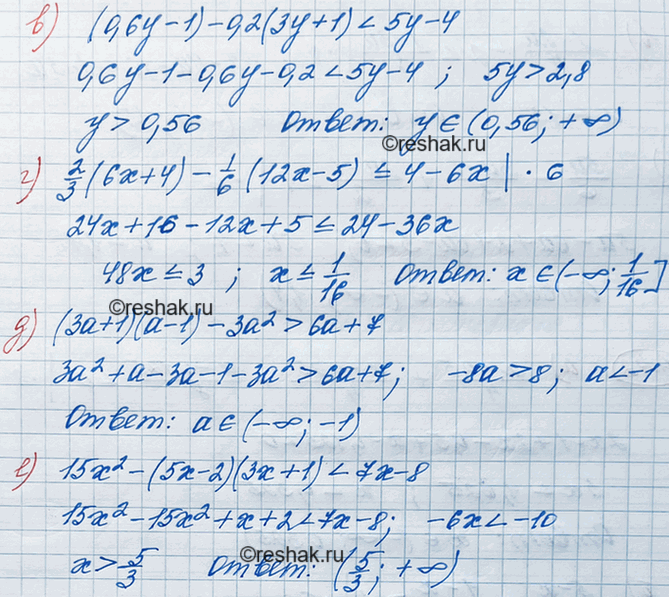 в) (0,6y-1)-0,2(3y+1)<5y-4
0,6y-1-0,6y-0,2<5y-4 ; 5y>2,8
y>0,56 Ответ: y∈(0,56; +∞)
©reshak.ru
г) 2/3(6x+4)-1/6(12x-5)≤4-6x|·6
24x+16-12x+5≤24-36x
48x≤3 ; x≤1/16 Ответ: x∈(-∞; 1/16]
©reshak.ru
д) (3a+1)(a-1)-3a²>6a+7
3a²+a-3a-1-3a²>6a+7; -8a>8; a<-1
Ответ: a∈(-∞; -1)
е) 15x²-(5x-2)(3x+1)<7x-8
15x²-15x²+x+2<7x-8; -6x<-10
©reshak.ru
x>5/3 Ответ: (5/3; +∞)